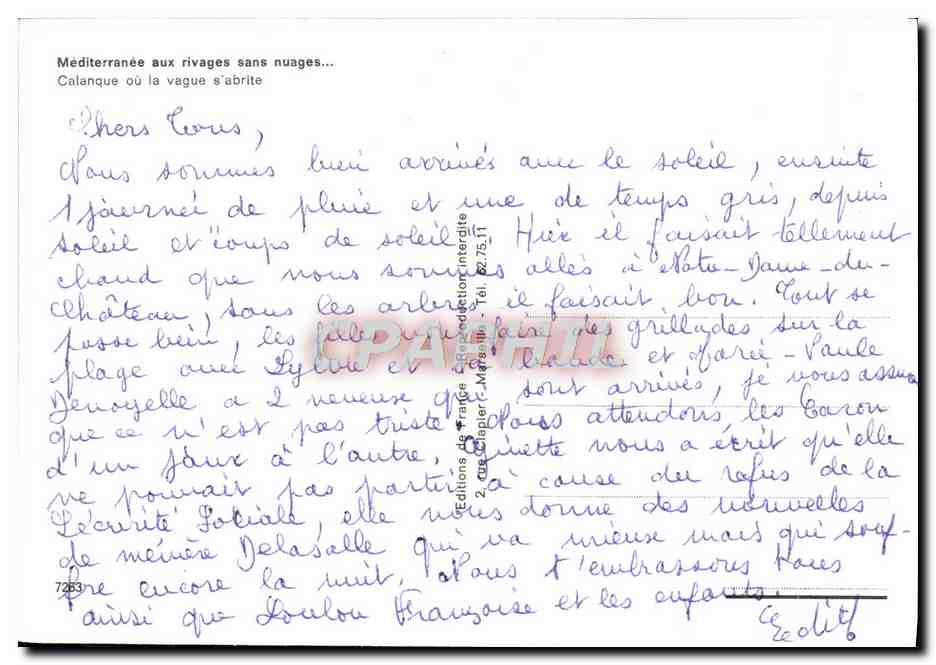 Méditerranée aux rivages sans nuages...
Calanque où la vague s'abrite
Chers Tous,
Nous sommes bien arrivés avec le soleil, ensuite
1 journeé de pluie et une de temps gris, depuis
soleil et "coups de soleil". Hier il faisait tellement
chaud que nous sommes allés à Notre-Dame-du-
Château, sous les arbres il faisait bon. Tout se
passe bien, les filles vont faire des grillades sur la
plage avec Sylvie et sa bande et Marie-Paule
Denoyelle a 2 neveux qui sont arrivés, je vous assure
que ce n'est pas triste. Nous attendons les Caron
d'un jour à l'autre. Ginette nous a écrit qu'elle
ne pouvait pas partir à cause du refus de la
Sécurité Sociale, elle nous donne des nouvelles
de mémère Delasalle qui va mieux mais qui souf-
fre encore la nuit. Nous t'embrassons tous
ainsi que Loulou Françoise et les enfants.
Edith
Editions de France - Reproduction interdite
2, rue Clapier - Marseille - Tél. 62.75.11
CPAPHIL
7263